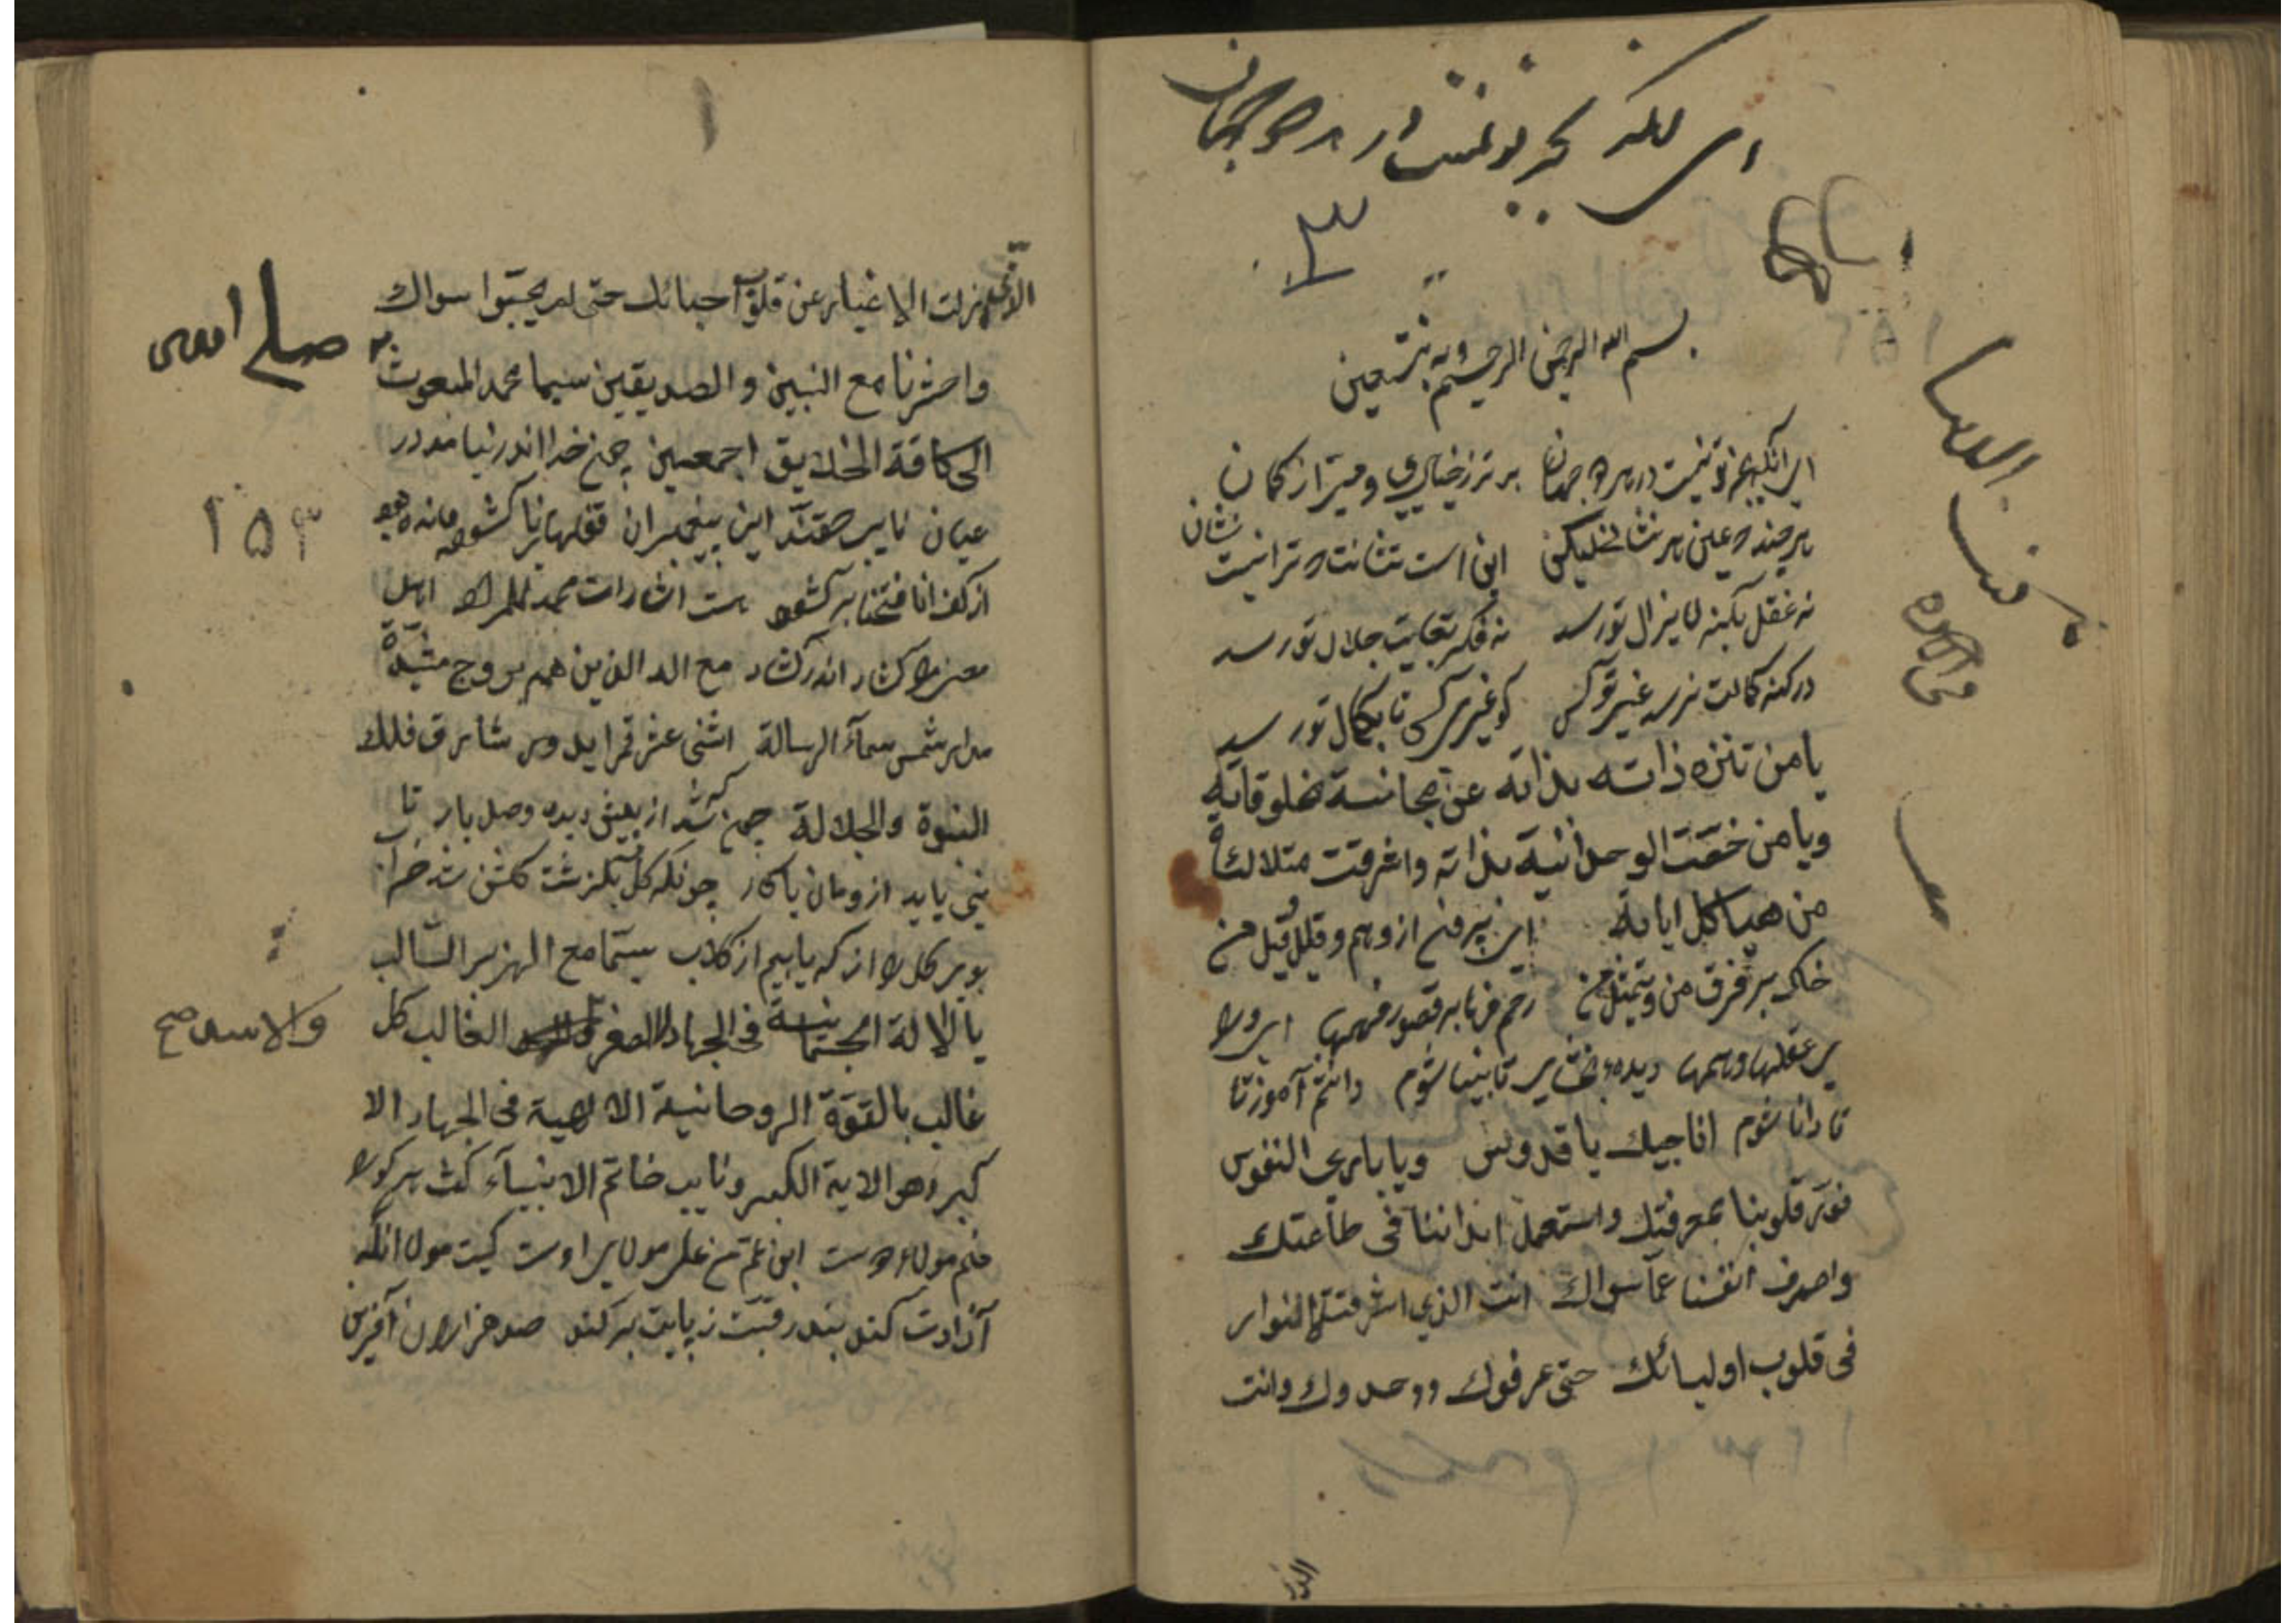 ای آنکه بجز تو نیست در هر دو جهان
۳
بسم الله الرحمن الرحیم وبه نستعین
ای آنکه بجز تو نیست در هر دو جهان برتر ز خیالی و مبرا از کمان
هر چند که عین هر نشانی لیکن این است نشانت که ترا نیست نشان
نه عقل بکنه لایزال تو رسد نه فکر بغایت جلال تو رسد
در کنه کمالت نرسد غیر تو کس کو غیر تو کس تا بکمال تو رسد
یا من تنزه ذاته بذاته عن مجانسة مخلوقاته
ویا من خصت الوحدانیة بذاته واغرقت متلالئة
من هیاکل ایاته ای برون از وهم وقال وقیل من
خاک بر فرق من و تمثیل من رحم فرما بر قصور فهمها ای ورا
ی عقلها و وهمها دیده بخشای تا بینا شوم دانشم آموز تا
تا دانا شوم اناجیك یا قدوس ویا باری النفوس
فنور قلوبنا بمعرفتك واستعمل ابداننا فی طاعتك
واصرف انفسنا عما سواك انت الذی اشرقت الانوار
فی قلوب اولیائك حتی عرفوك ووحدوك وانت
الذی
الذی ازلت الاغیار عن قلوب احبائك حتی لم یحبوا سواك
واحشرنا مع النبیین والصدیقین سیما محمد المبعوث
صلی
الی کافة الخلایق اجمعین چون خدا اندر نیامد در
عیان نایب حقند این پیغمبران قفلهای ناکشوده مانده بود
۱۵۳
از کف انا فتحنا بر کشود هست اشارات محمد المراد
کشاد اندر کشاد مع الہ الذین هم بروج مشیدة
مدار شمس سمآء الرسالة اثنی عشر قمرا یدور مشارق فلك
النبوة والجلالة چون کہ شد از پیش دیده وصل یار
نایبی باید ازومان یادکار چونکه کل بکذشت کلشن شد خراب
بوی کل را از که یابیم از کلاب سیما مع الهزبر السالب
بالالة الجسمانیة فی الجهاد الاصغر الغالب کل
والاسد صح
غالب بالقوة الروحانیة الالهیة فی الجهاد الا
کبر وهو الایة الکبری ونایب خاتم الانبیآء کفت هر کو را
منم مولا و دوست ابن عم من علی مولای اوست کیست مولا آنکه
آزادت کند بند رقیت ز پایت بر کند صد هزاران آفرین